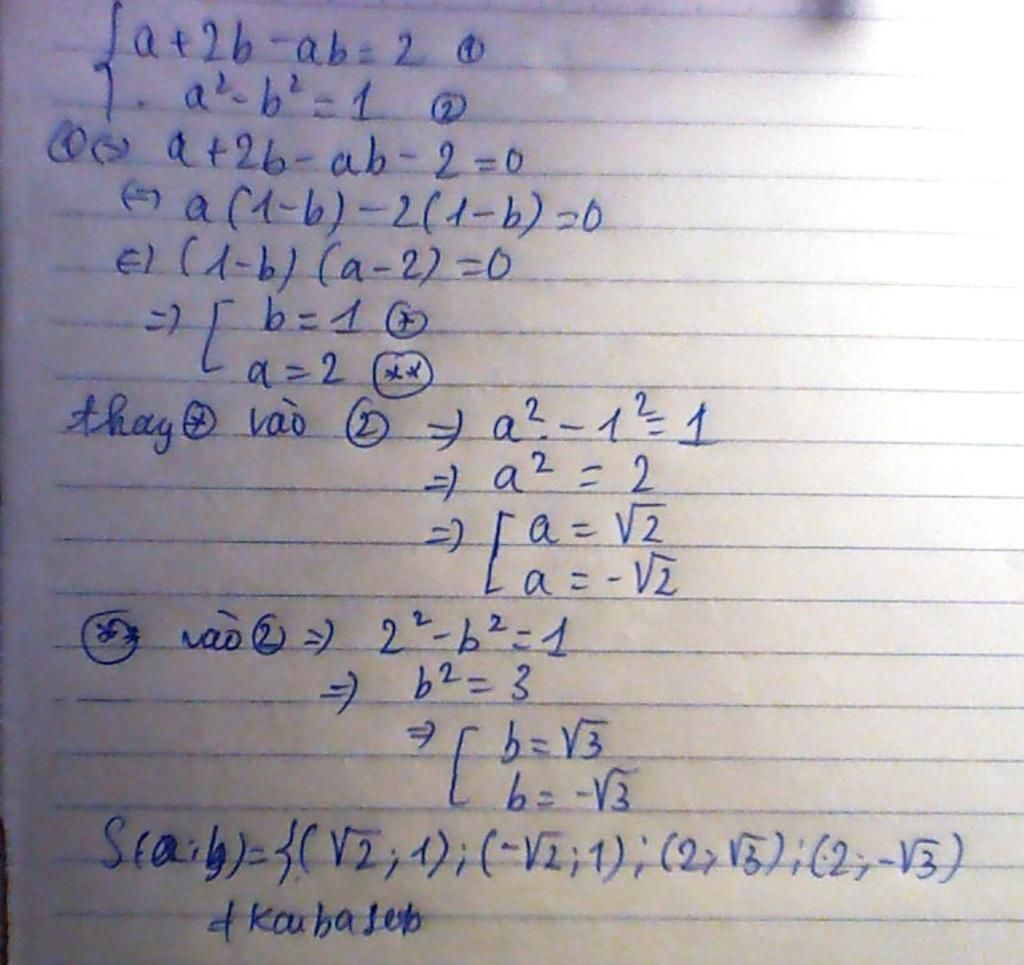 { a + 2b - ab = 2 ①
a² - b² = 1 ②
① ⇔ a + 2b - ab - 2 = 0
⇔ a(1-b) - 2(1-b) = 0
⇔ (1-b)(a-2) = 0
⇒ [ b = 1 (*)
a = 2 (**)
thay (*) vào ② ⇒ a² - 1² = 1
⇒ a² = 2
⇒ [ a = √2
a = -√2
(**) vào ② ⇒ 2² - b² = 1
⇒ b² = 3
⇒ [ b = √3
b = -√3
S(a;b) = {(√2; 1); (-√2; 1); (2; √3); (2; -√3)